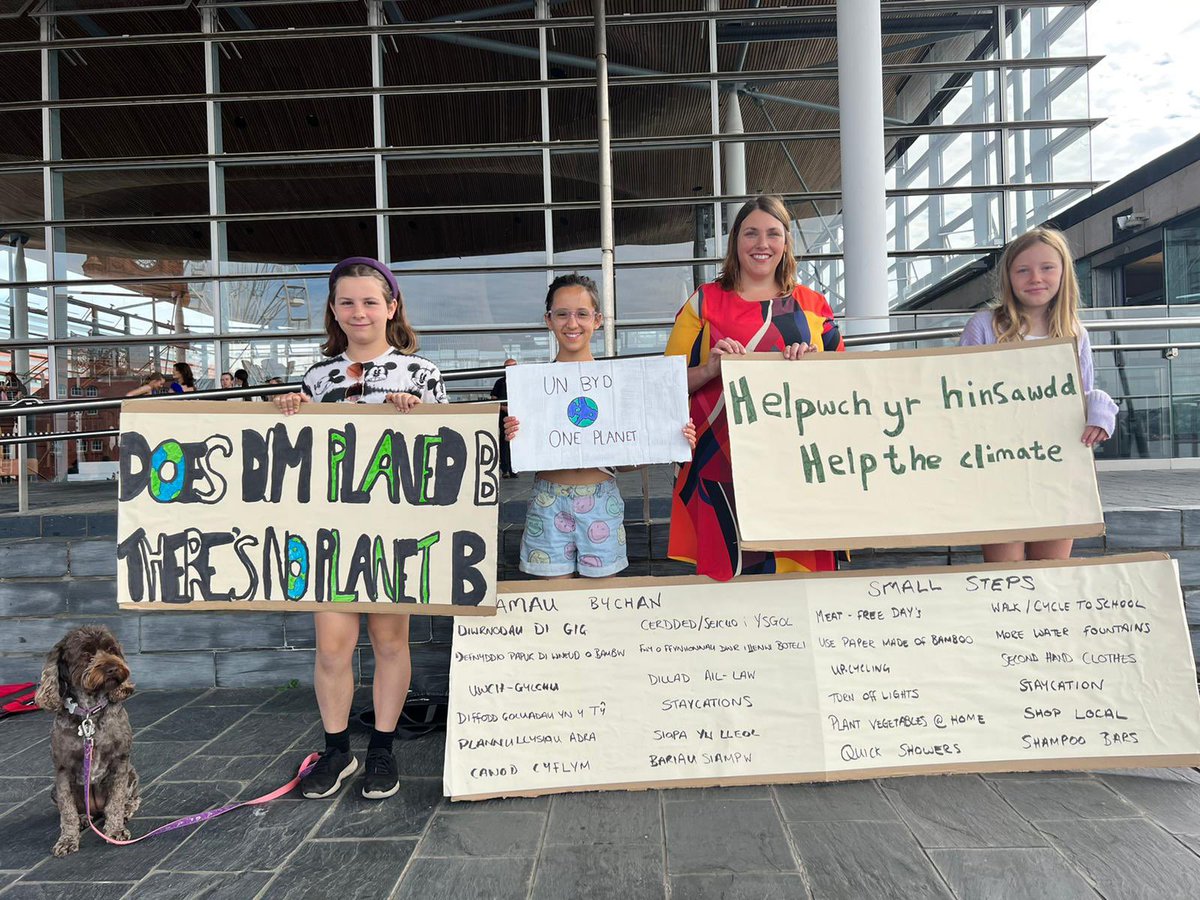 DOES DIM PLANED B
THERE'S NO PLANET B
UN BYD
ONE PLANET
Helpwch yr hinsawdd
Help the climate
AMAU BYCHAN
DIWRNODAU DI GIG
DEFNYDDIO PAPUR DI WNEUD O BAMBW
UWCH-GYLCHU
DIFFODD GOLUADAU YN Y TŶ
PLANNU LLYSIAU ADRA
CAWOD CYFLYM
CERDDED/SEICLO I YSGOL
FWY O FFYNHONNAU DWR I LLENWI BOTELI
DILLAD AIL-LAW
STAYCATIONS
SIOPA YN LLEOL
BARIAU SIAMPW
SMALL STEPS
MEAT-FREE DAY'S
USE PAPER MADE OF BAMBOO
UPCYCLING
TURN OFF LIGHTS
PLANT VEGETABLES @ HOME
QUICK SHOWERS
WALK/CYCLE TO SCHOOL
MORE WATER FOUNTAINS
SECOND HAND CLOTHES
STAYCATION
SHOP LOCAL
SHAMPOO BARS